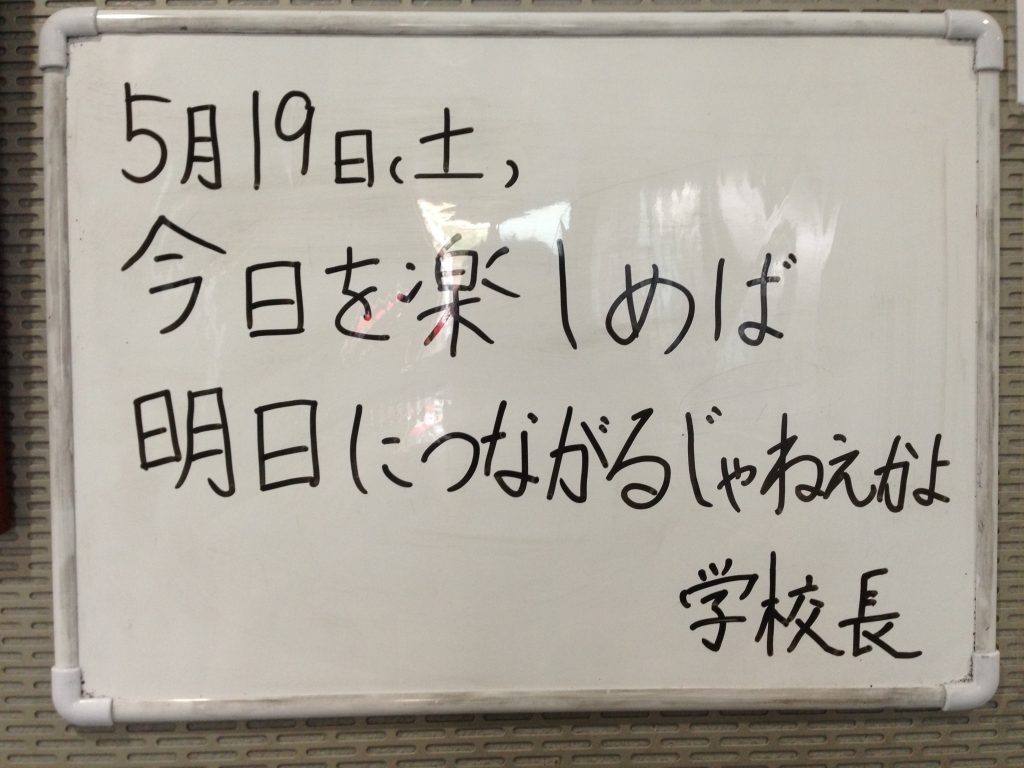 5月19日(土)
今日を楽しめば
明日につながるじゃねえかよ
学校長